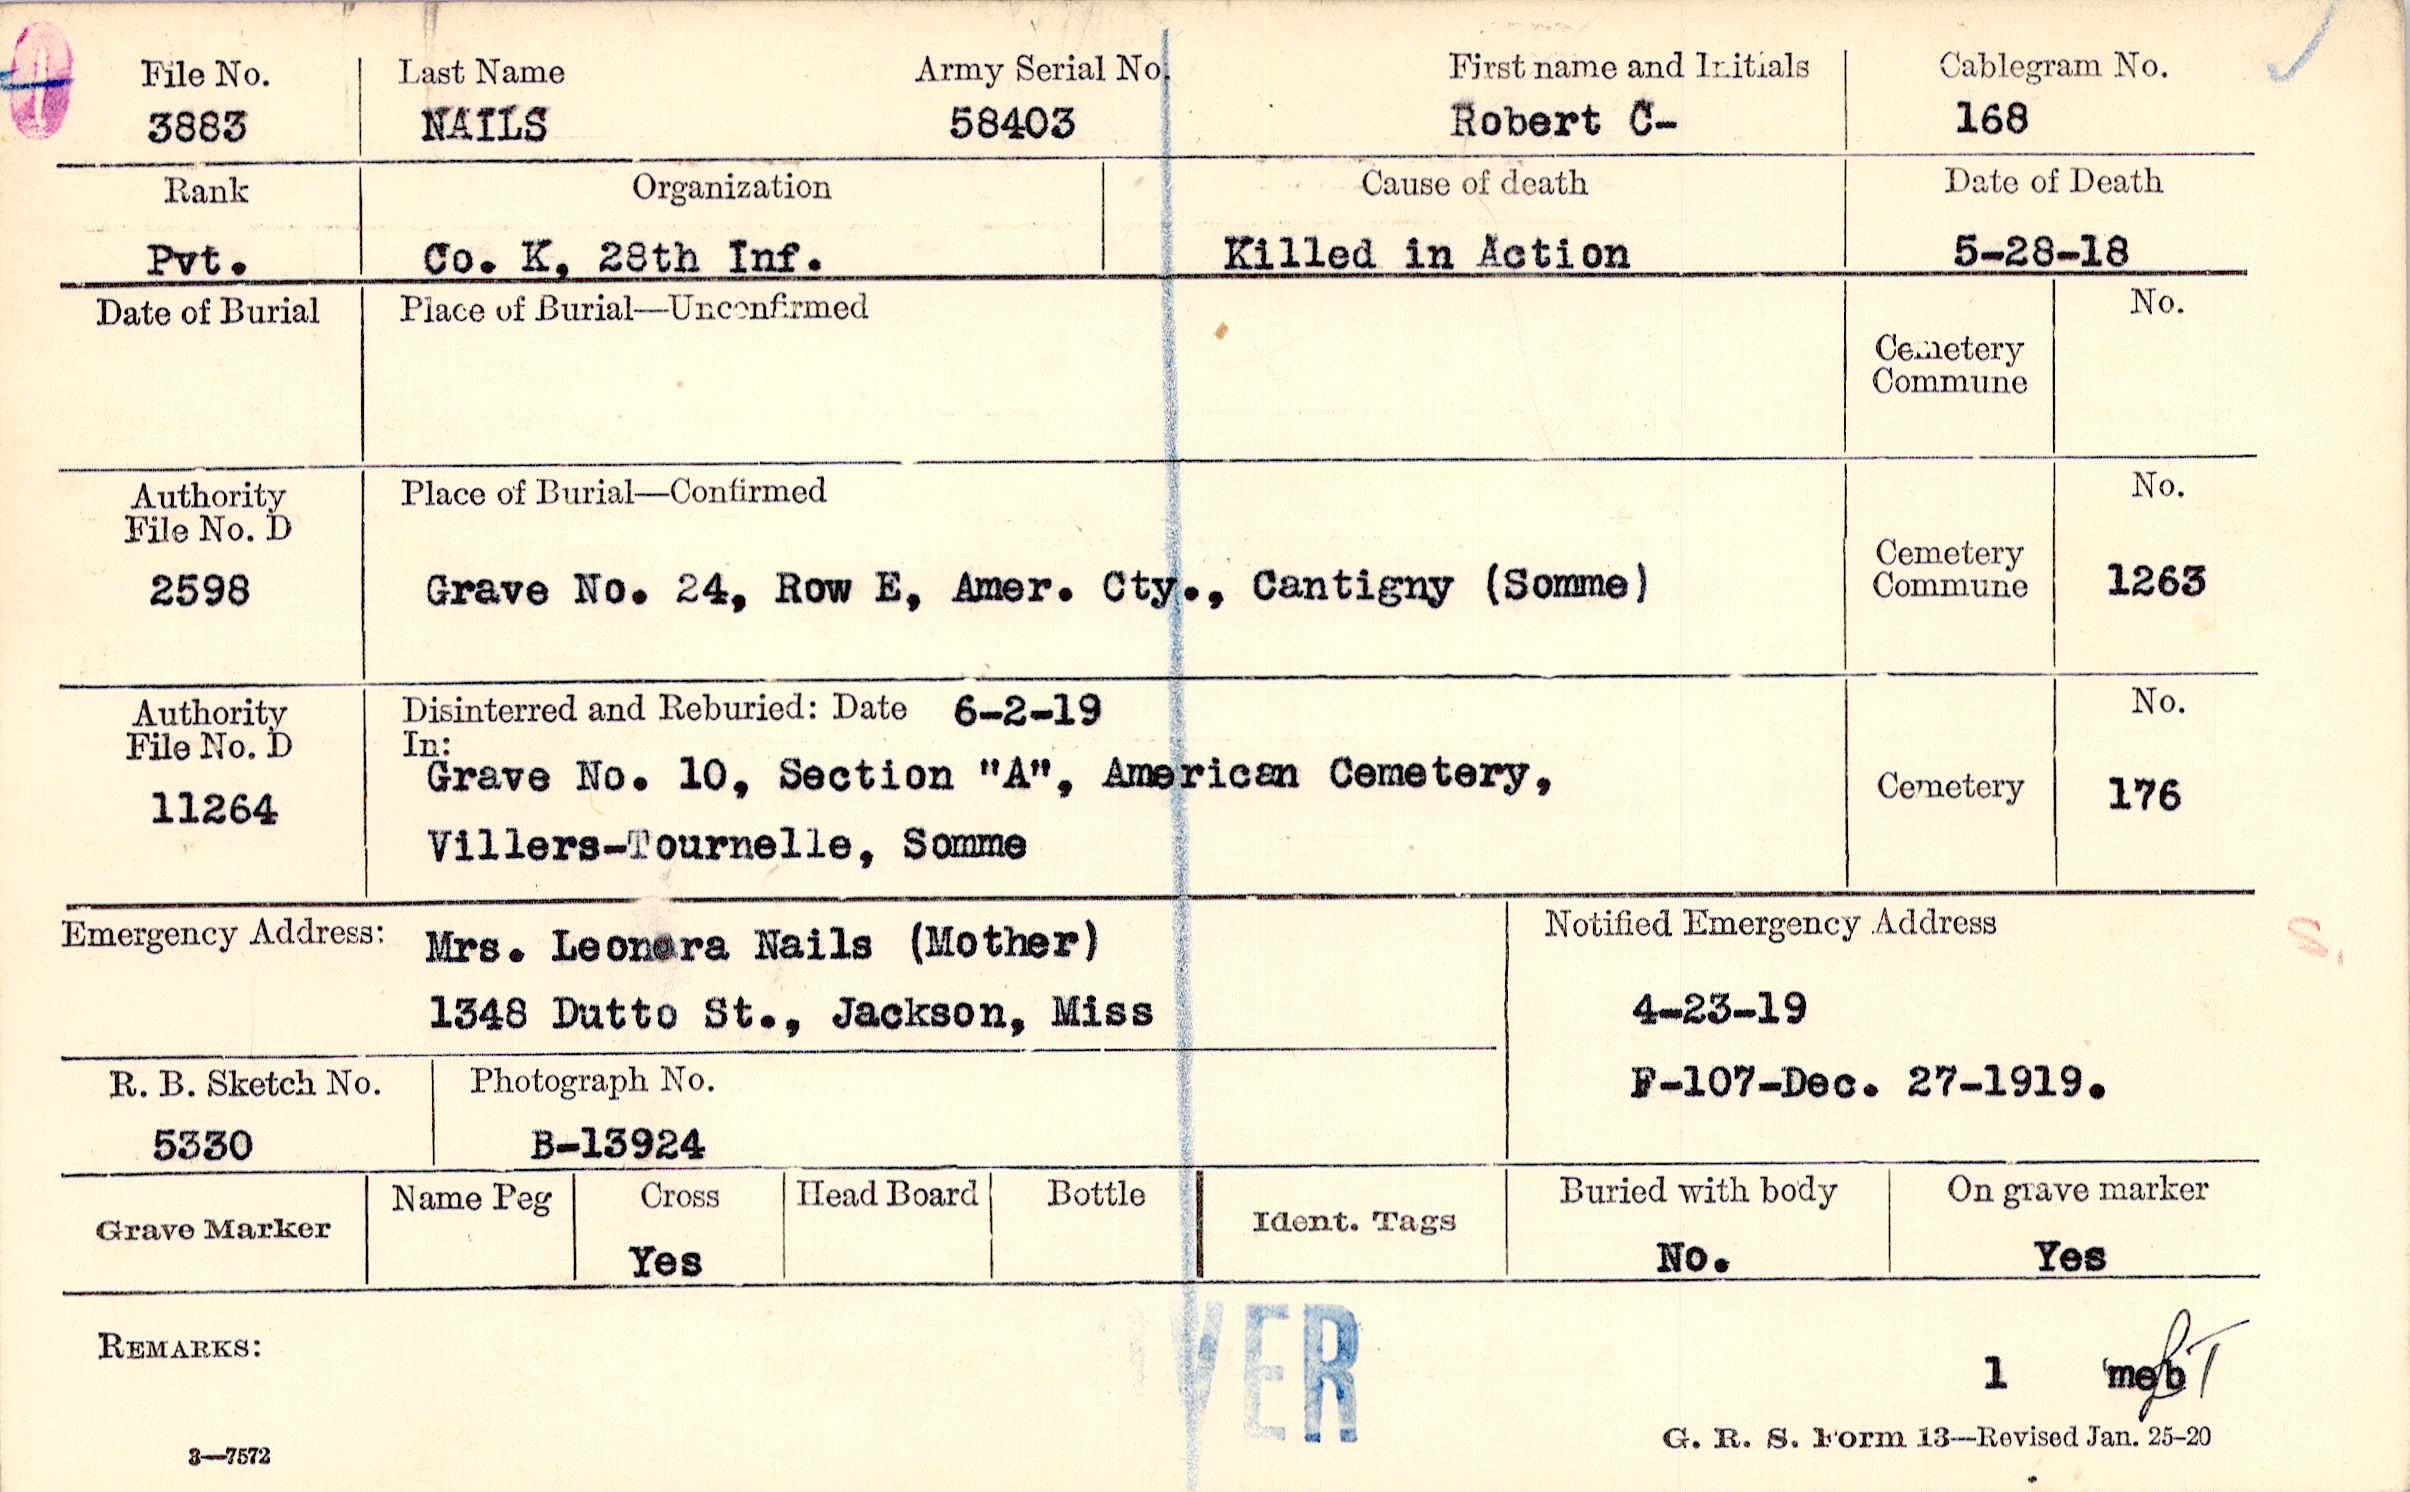 File No. Last Name Army Serial No. First name and Initials Cablegram No.
3883 NAILS 58403 Robert C- 168
Rank Organization Cause of death Date of Death
Pvt. Co. K, 28th Inf. Killed in Action 5-28-18
Date of Burial Place of Burial—Unconfirmed No.
Cemetery
Commune
Authority Place of Burial—Confirmed No.
File No. D
Cemetery
2598 Grave No. 24, Row E, Amer. Cty., Cantigny (Somme) Commune 1263
Authority Disinterred and Reburied: Date 6-2-19 No.
File No. D In:
Grave No. 10, Section "A", American Cemetery, Cemetery 176
11264
Villers-Tournelle, Somme
Emergency Address: Mrs. Leonora Nails (Mother) Notified Emergency Address
1348 Dutto St., Jackson, Miss 4-23-19
R. B. Sketch No. Photograph No. F-107-Dec. 27-1919.
5330 B-13924
Grave Marker Name Peg Cross Head Board Bottle Ident. Tags Buried with body On grave marker
Yes No. Yes
VER
REMARKS:
1 meb
G. R. S. Form 13—Revised Jan. 25-20
3—7572